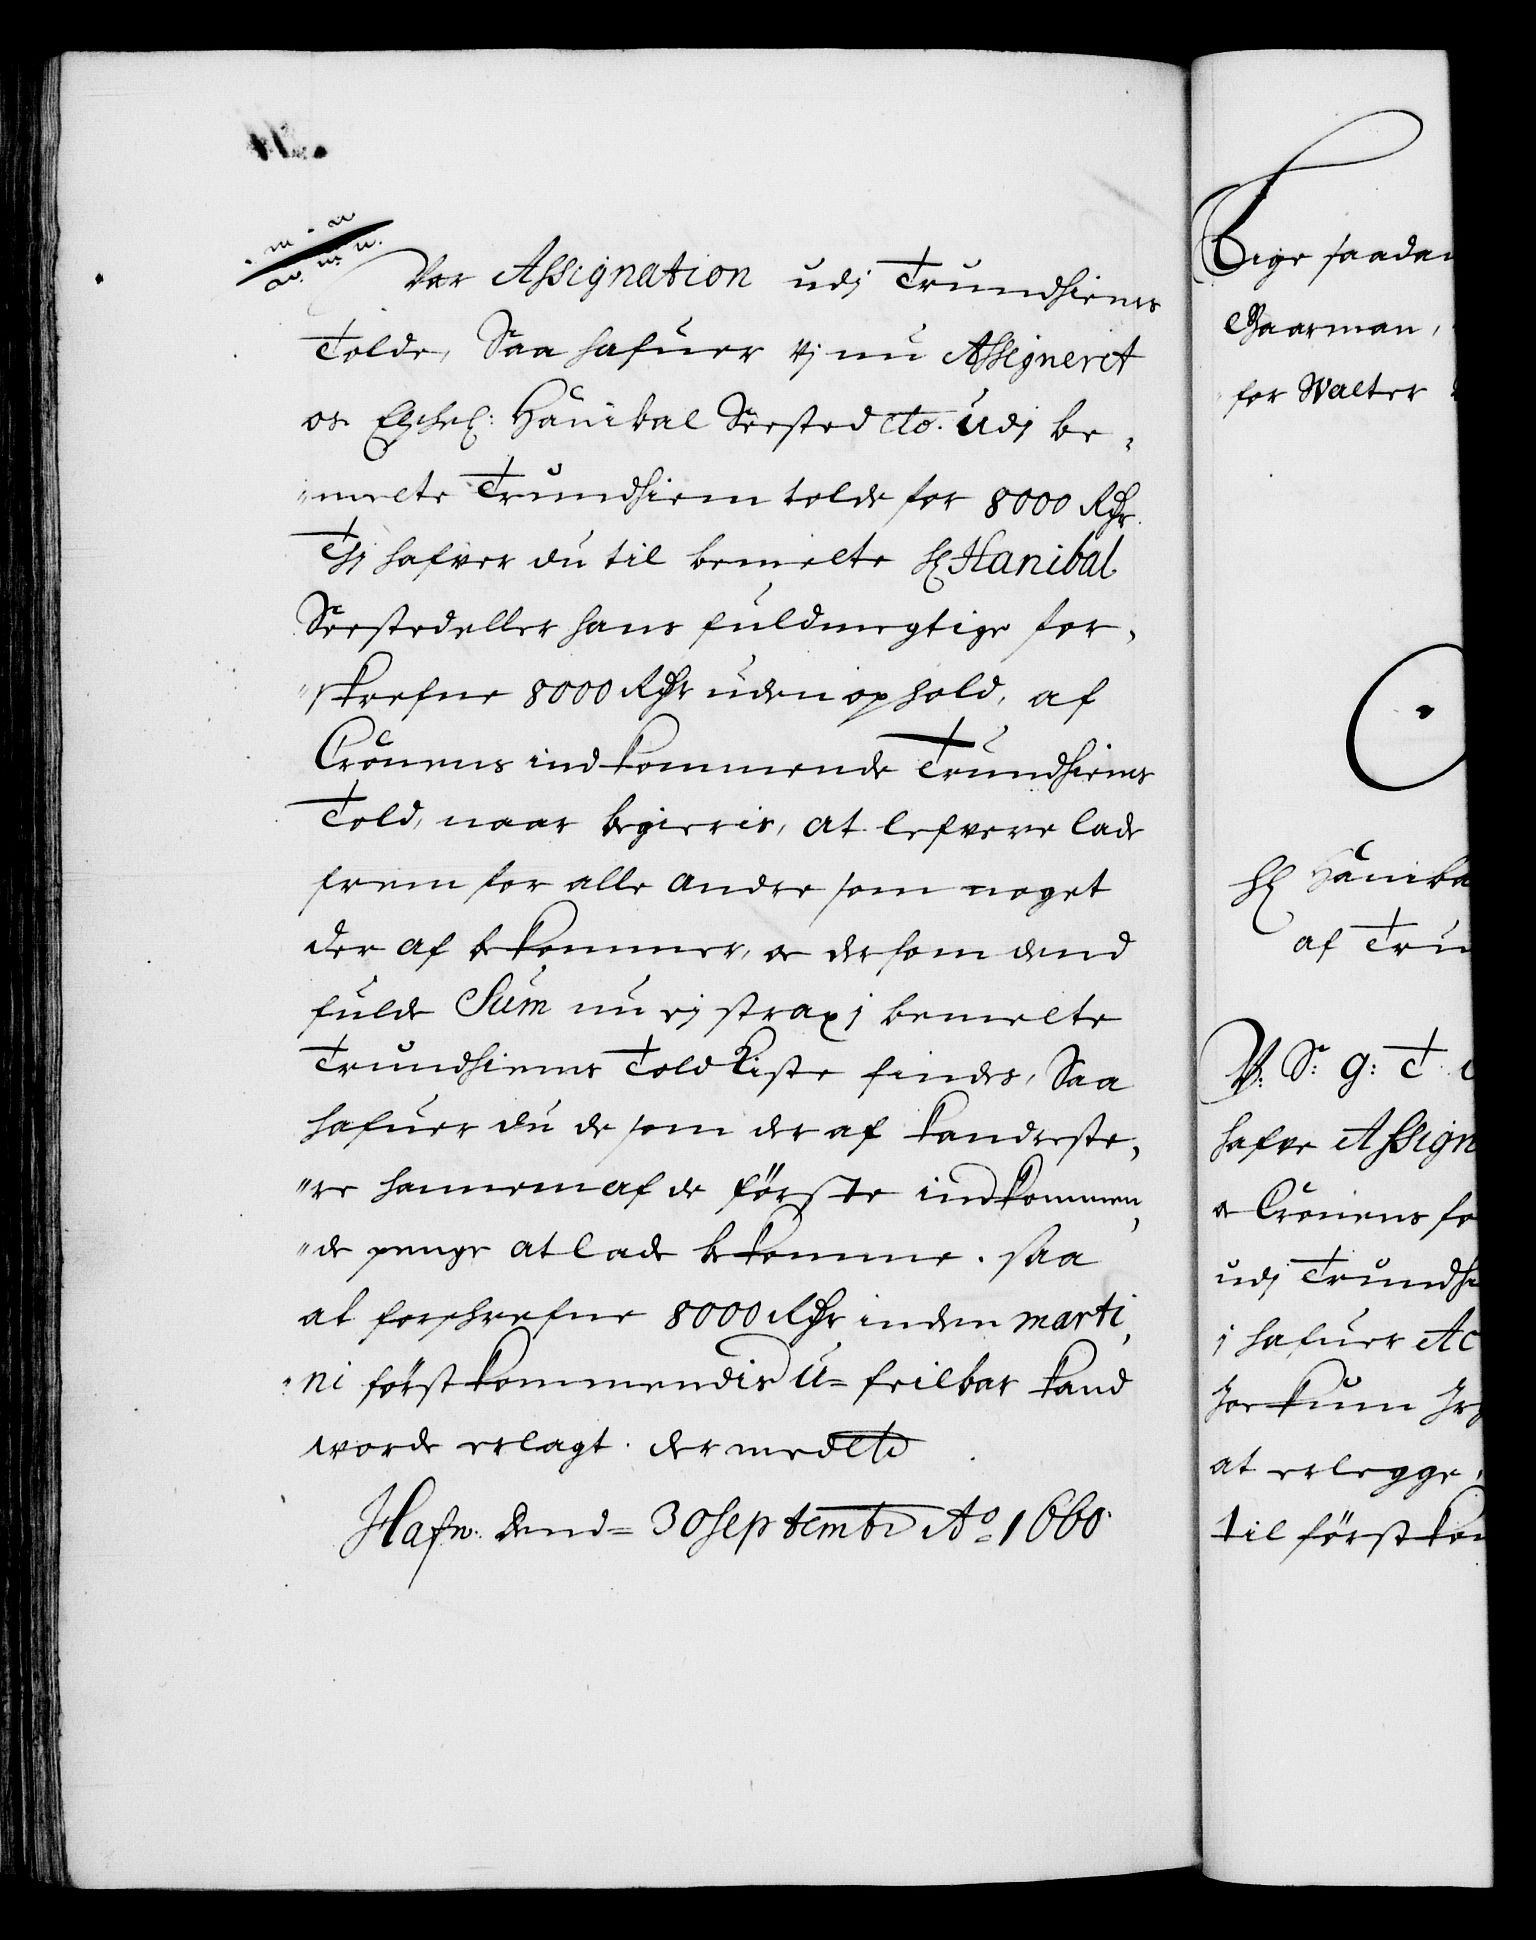 Vor Assignation udj Trundhiems
Tolde, Saa hafuer Vj nu Assigneret
os Elschel: Hanibal Seested etc. Udj be¬
"melte Trundhiem tolde for 8000 Rdr.
Thj hafver du til bemelte H Hanibal
Seested eller hans fuldmegtige for¬
"skrefne 8000 Rdr uden ophold, af
Cronens indkommende Trundhiems
Told, naar begieris, at lefvere lade
frem for alle andre som noget
der af bekommer, oc dersom dend
fulde Sum nu ej strax j bemelte
Trundhiems Told Kiste findes, Saa
hafuer du de som der af kand reste¬
"re hannem af de förste indkommen¬
"de penge at lade bekomme. saa
at forschrefne 8000 Rdr inden marti¬
"ni förstkommendis U=feilbar kand
vorde erlagt. der med etc
Hafn: dend = 30 Septembr Ao= 1660.
Lige saadan
Gaarman,
for Walter
H Haniba
af Trun
V: S: g: T
hafve Assign
oc Cronens fo
udj Trundhi
j hafuer Ac
at erlegge,
til förstkom